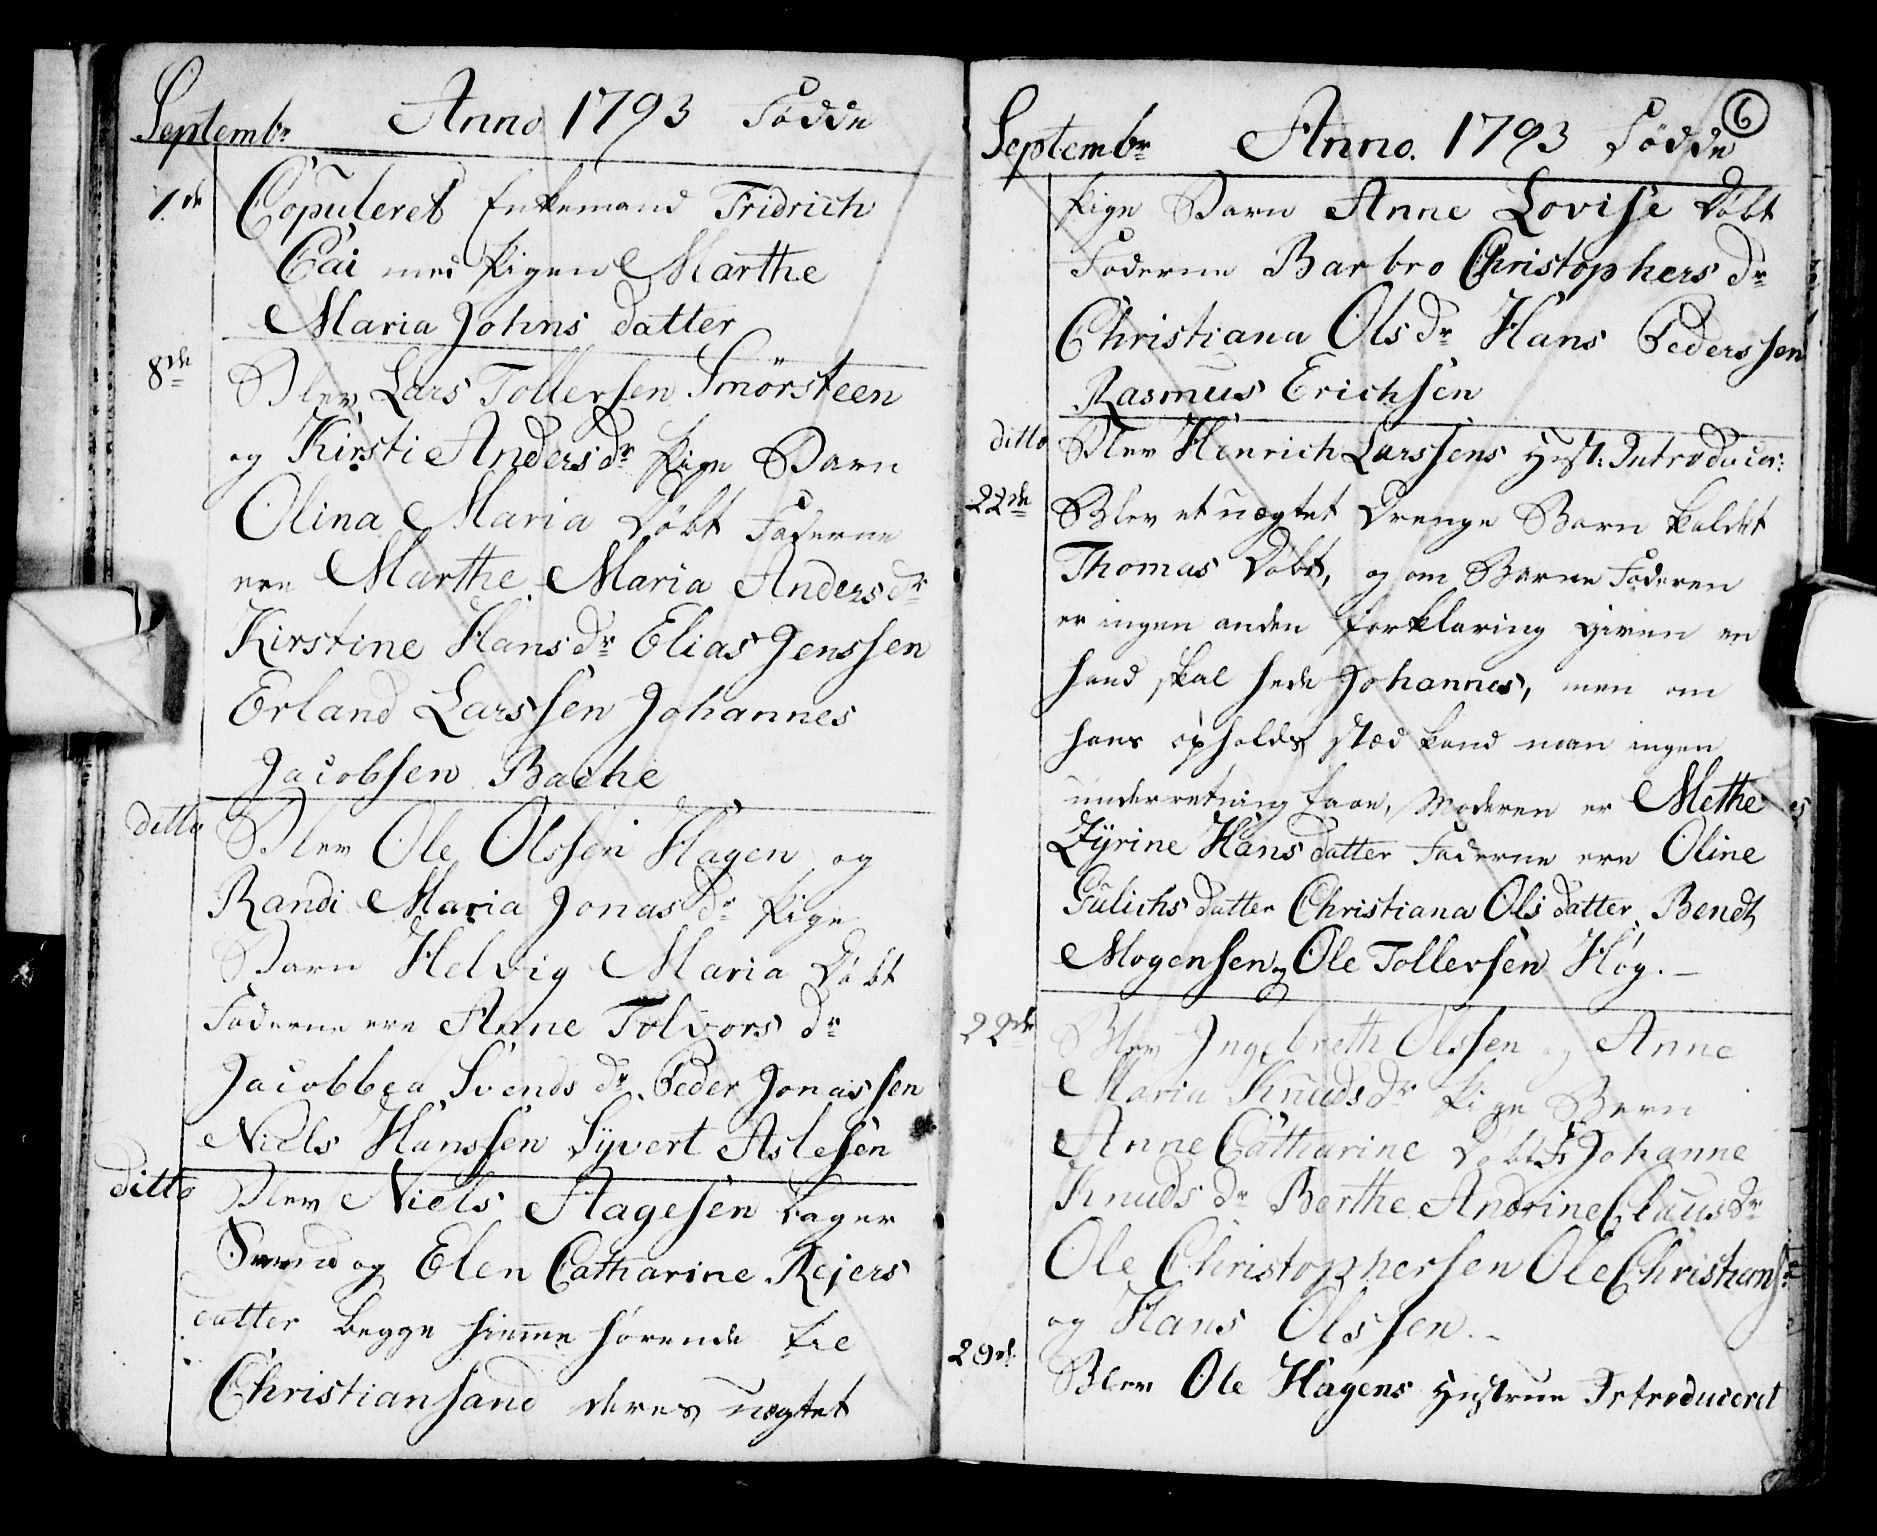 Septembr Anno 1793 Fødde
7de Copuleret Enkemand Fridrich
Cai med Pigen Marthe
Maria Johns datter
8de Blev Lars Tollersen Smörsteen
og Kirsti Anders dr Pige Barn
Olina Maria Döbt Faderne
ere Marthe Maria Anders dr
Kirstine Hans dr Elias Jenssen
Erland Larssen Johannes
Jacobsen Bache
ditto Blev Ole Olssen Hagen og
Randi Maria Jonas dr Pige
Barn Helvig Maria Döbt
Faderne ere Anne Tolvors dr
Jacobbea Svends dr Peder Jonassen
Niels Hanssen Syvert Aslesen
ditto Blev Niels Aagesen Bager
Svend og Elen Catharine Rejers
datter begge hiemme hörende til
Christiansand deres uægtet
6
Septembr Anno. 1793 Födde
Pige Barn Anne Lovise Döbt
Faderne Barbro Christophers dr
Christiana Ols dr Hans Pederssen
Rasmus Erichsen
ditto Blev Henrich Larssens Hust: Introducer:
22de Blev et uægtet Drenge Barn kaldet
Thomas Döbt, og om Barne Faderen
er ingen anden forklaring given en
hand skal hede Johannes, men om
hans opholds stæd kand man ingen
underretning faae, Moderen er Methe
Zyrine Hans datter Faderne ere Oline
Gulichs datter Christiana Ols datter Bendt
Mogensen og Ole Tollersen Høg. –
22de Blev Ingebreth Olssen og Anne
Maria Knuds dr Pige Barn
Anne Catharine Döbt F: Johanne
Knuds dr Berthe Andrine Claus dr
Ole Christophersen Ole Christians:
og Hans Olssen. –
29de Blev Ole Hagens Hustrue Introduceret